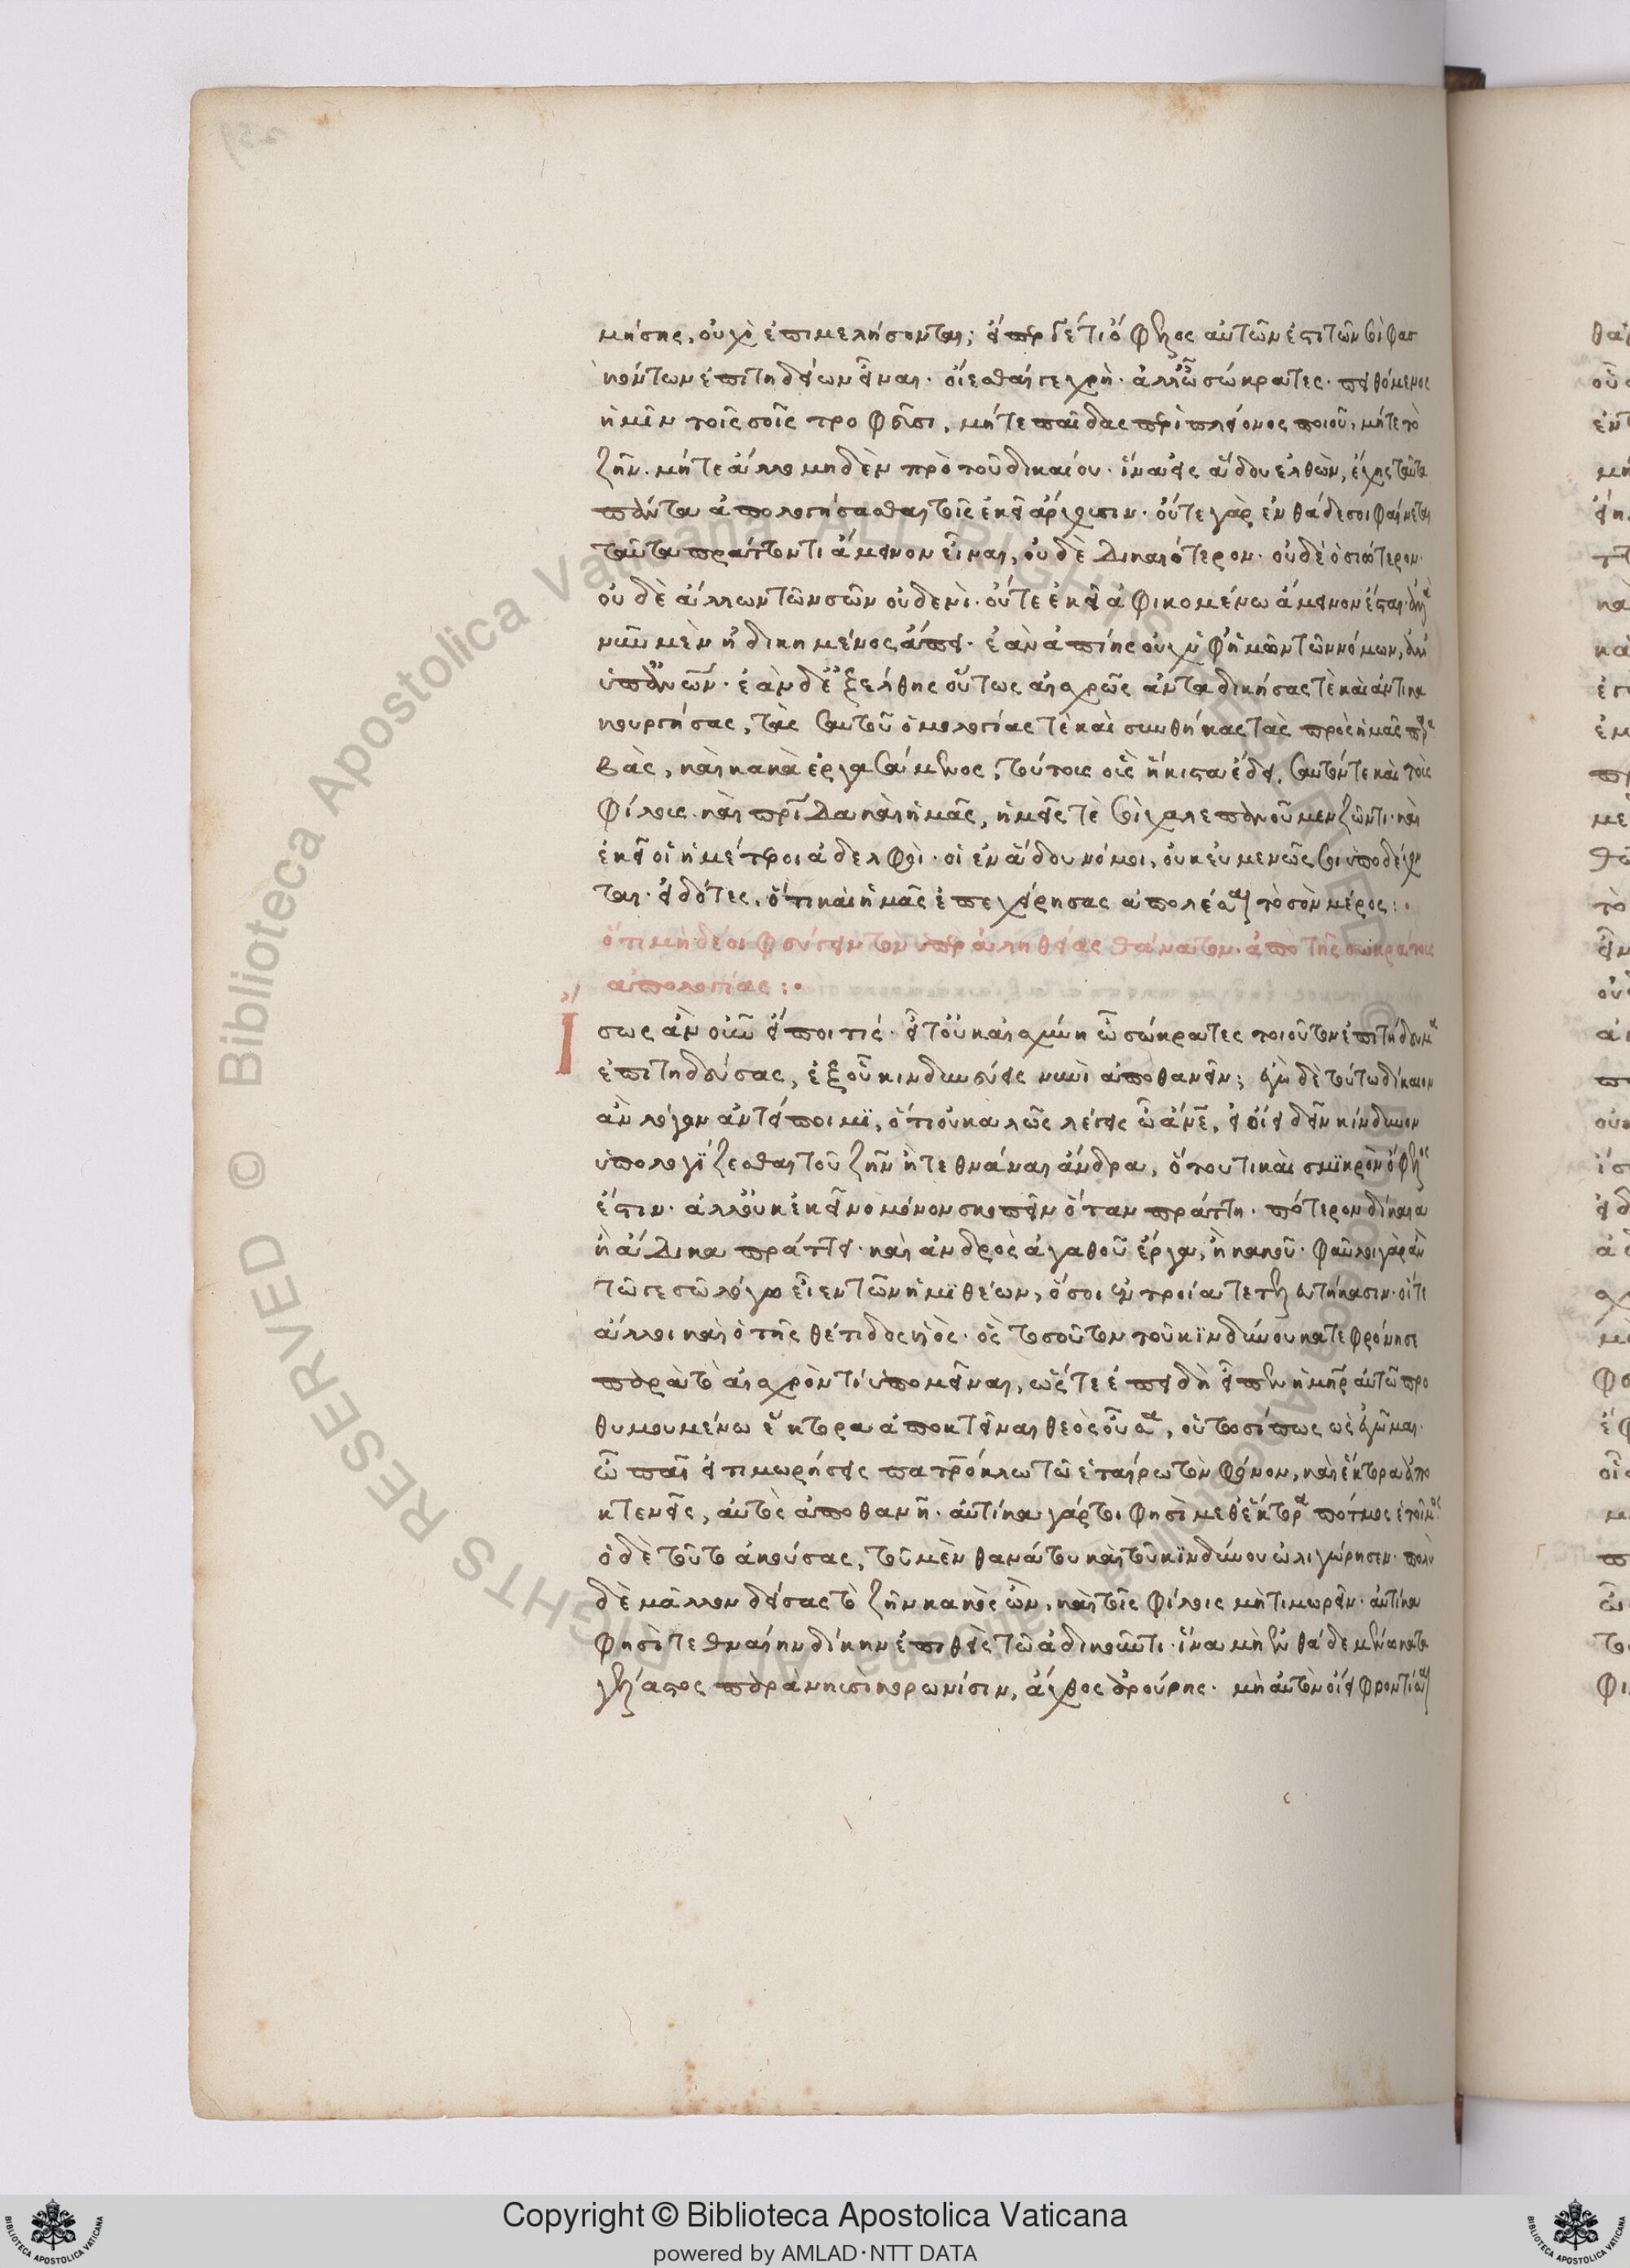 μήσῃς, οὐχὶ ἐπιμελήσονται; εἴπερ γέ τι ὄφελος αὐτῶν ἐστι τῶν σοὶ φασ
κόντων ἐπιτηδείων εἶναι. οἴεσθαί γε χρή. ἀλλ' ὦ σώκρατες. πειθόμενος
ἡμῖν τοῖς σοῖς τροφεῦσι, μήτε παῖδας περὶ πλείονος ποιοῦ, μήτε τὸ
ζῆν. μήτε ἄλλο μηδὲν πρὸ τοῦ δικαίου. ἵνα εἰς ἅδου ἐλθὼν, ἔχῃς ταῦτα
πάντα ἀπολογήσασθαι τοῖς ἐκεῖ ἄρχουσιν. οὔτε γὰρ ἐνθάδε σοι φαίνεται
ταῦτα πράττοντι ἄμεινον εἶναι, οὐδὲ δικαιότερον. οὐδὲ ὁσιώτερον.
οὐδὲ ἄλλων τῶν σῶν οὐδενὶ. οὔτε ἐκεῖ ἀφικομένω ἄμεινον ἔσται. ἀλλὰ
νῦν μὲν ἠδικημένος ἄπει. ἐὰν ἀπίῃς οὐχ ὑφ' ἡμῶν τῶν νόμων, ἀλλ'
ὑπὸ ἀνῶν. ἐὰν δὲ ἐξέλθῃς οὕτως αἰσχρῶς ἀνταδικήσας τὲ καὶ ἀντικα
κουργήσας, τὰς σαυτοῦ ὁμολογίας τὲ καὶ συνθήκας τὰς πρὸς ἡμᾶς παρα
βὰς, καὶ κακὰ ἐργασάμενος, τούτοις οἷς ἥκιστα ἔδει, σαυτόν τε καὶ τοὺς
φίλους. καὶ πρίδα καὶ ἡμᾶς, ἡμεῖς τέ σοι χαλεπανοῦμεν ζῶντι. καὶ
ἐκεῖ οἱ ἡμέτεροι ἀδελφοὶ. οἱ ἐν ἅδου νόμοι, οὐκ εὐμενῶς σε ὑποδέξον
ται. εἰδότες, ὅτι καὶ ἡμᾶς ἐπεχείρησας ἀπολέσαι τὸ σὸν μέρος:.
ὅτι μὴ δέοι φεύγειν τὸν ὑπὲρ ἀληθείας θάνατον. ἀπὸ τῆς σωκράτους
ἀπολογίας:.
Ἴσως ἂν οὖν εἴποι τίς. εἶτ' οὐκ αἰσχύνη ὦ σώκρατες τοιοῦτον ἐπιτήδευμα
ἐπιτηδεύσας, ἐξ οὗ κινδυνεύεις νυνὶ ἀποθανεῖν; ἐγὼ δὲ τούτω δίκαιον
ἂν λόγον ἀντείποιμι, ὅτι οὐ καλῶς λέγεις ὦ ἄνε, εἰ οἴει δεῖν κίνδυνον
ὑπολογίζεσθαι τοῦ ζῆν ἢ τεθνάναι ἄνδρα, ὅτου τι καὶ σμικρὸν ὄφελος
ἐστιν. ἀλλ' οὐκ ἐκεῖνο μόνον σκοπεῖν ὅταν πράττη. πότερον δίκαια
ἢ ἄδικα πράττει. καὶ ἀνδρὸς ἀγαθοῦ ἔργα, ἢ κακοῦ. φαῦλοι γὰρ ἂν
τῶ γε σῶ λόγω εἶεν τῶν ἡμιθέων, ὅσοι ἐν τροία τετελευτήκασιν. οἵ τε
ἄλλοι καὶ ὁ τῆς θέτιδος υἱός. ὃς τοσοῦτον τοῦ κινδύνου κατεφρόνησε
παρὰ τὸ αἰσχρόν τι ὑπομεῖναι, ὥστε ἐπειδὴ εἶπεν ἡ μηρ αὐτῶ προ
θυμουμένω ἕκτορα ἀποκτεῖναι θεὸς οὖσα, οὑτοσί πως ὡς ἐγῶμαι.
ὦ παῖ εἰ τιμωρήσεις πατρόκλω τῶ ἑταίρω τὸν φόνον, καὶ ἕκτορα ἀπο
κτενεῖς, αὐτὸς ἀποθανῆ. αὐτίκα γάρ τοι φησὶ μεθ' ἕκτορα πότμος ἑτοῖμος
ὁ δὲ τοῦτο ἀκούσας, τοῦ μὲν θανάτου καὶ τοῦ κινδύνου ὠλιγώρησεν. πολὺ
δὲ μᾶλλον δείσας τὸ ζῆν κακὸς ὢν, καὶ τοῖς φίλοις μὴ τιμωρεῖν. αὐτίκα
φησὶ τεθναίην δίκην ἐπιθεὶς τῶ ἀδικοῦντι. ἵνα μὴ ἐνθάδε μένω κατα
γέλαστος παρὰ νηυσὶ κορωνίσιν, ἄχθος ἀρούρης. μὴ αὐτὸν οἴει φροντίσαι